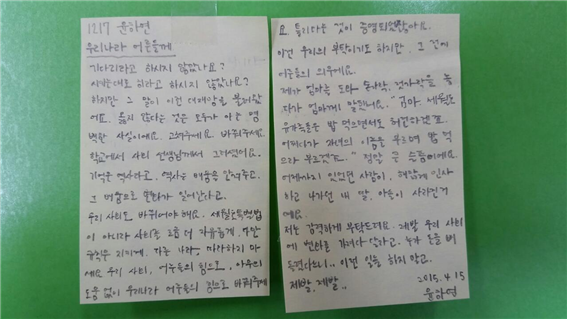 1217 윤하연
우리나라 어른들께
기다리라고 하시지 않았나요?
시키는대로 하라고 하시지 않았나요?
하지만 그 말이 이런 대재앙을 불러왔
어요. 옳지 않다는 것은 모두가 아는 명
백한 사실이에요. 고쳐주세요 바꿔주세요
학교에서 사회 선생님께서 그러셨어요.
기억은 역사라고, 역사는 배움을 안겨주고,
그 배움으로 변화가 일어난다고.
우리 사회도 바뀌어야 해요.
이 아니라 사회를 좀 더 자유롭게, 다만
규칙은 지키게. 다른 나라 따라하지 마
세요 우리 사회, 어른들의 힘으로, 아무의
도움 없이 우리나라 어른들의 힘으로 바꿔주세
요. 틀리다는 것이 증명되었잖아요.
이건 우리의 부탁이기도 하지만, 그 전에
어른들의 의무예요.
제가 엄마랑 도와 숟가락, 젓가락을 놓
다가 엄마께 말했어요. "엄마, 세월호
유가족들은 밥 먹으면서도 허전하겠죠.
어머니가 자녀의 이름을 부르며 밥 먹
으라 부르겠죠.." 정말 큰 슬픔이에요.
어제까지 있었던 사람이, 해맑게 인사
하고 나가던 내 딸, 아들이 사라진거
예요.
저는 감격하게 부탁드려요. 제발 우리 사회
에 변화를 가져다 달라고. 누가 돈을 비
득렸다느니.. 이런 일을 하지 않고.
제발, 제발..
2015. 4. 15
윤하연